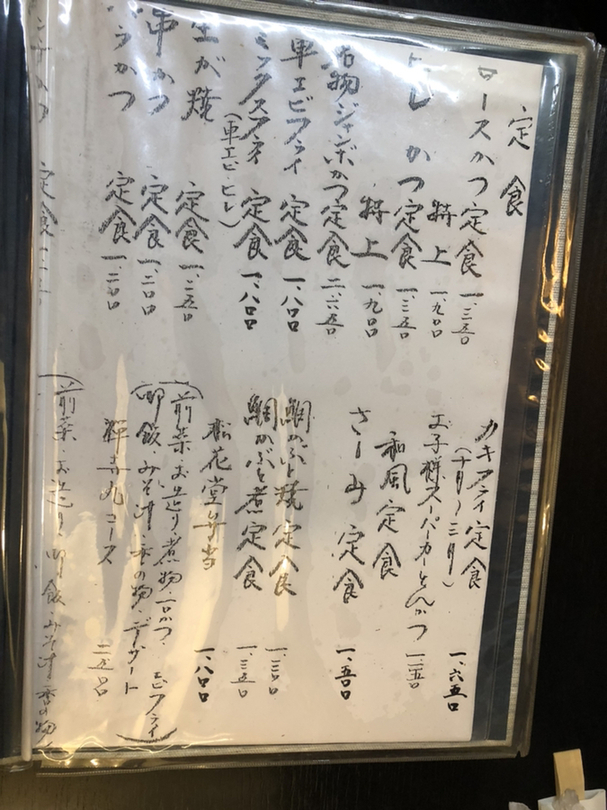 定食
ロースかつ定食 一、三五〇
特上 一、九〇〇
ヒレかつ定食 一、三五〇
特上 一、九〇〇
ジャンボかつ定食 二、六五〇
車エビフライ定食 一、八〇〇
ミックスフライ定食 一、八〇〇
(車エビ・ヒレ)
生が焼定食 一、二五〇
串かつ定食 一、二〇〇
バラかつ定食 一、二〇〇
カキフライ定食 一、六五〇
(十月〜三月)
お子様スーパーカーとんかつ
和風定食
さしみ定食 一、五〇〇
鯛かぶと焼定食 一、三〇〇
鯛かぶと煮定食 一、三五〇
松花堂弁当 一、八〇〇
(前菜・お造り・煮物・一口かつ・エビフライ
御飯・みそ汁・香の物・デザート)
コース 二、五〇〇
(前菜・お造り・御飯・みそ汁・香の物